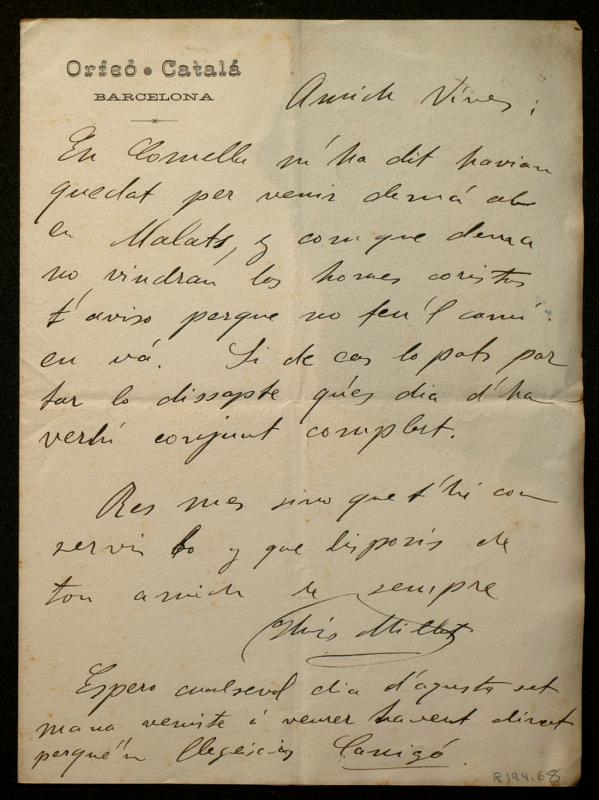 Orfeó Catalá
BARCELONA
Amich Vives:
En Comella m'ha dit havian
quedat per venir demá ab
en Malats, y com que dema
no vindrán los homes coristas
t'aviso perque no feu'l camí
en vá. Si de cas lo pots por
tar lo dissapte qu'es dia d'ha
verhi conjunt complert.
Res mes sino que t'hi con
servis bo y que disposis de
ton amich de sempre
Lluis Millet
Espero cualsevol dia d'aquesta set
mana venirte á veurer havent dinat
perque'm llegeixis Canigó.
R)94.68